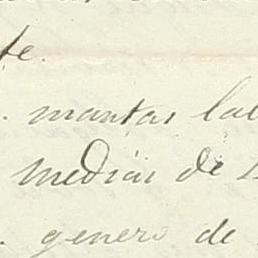 te.
mantas la
medias de
genero de